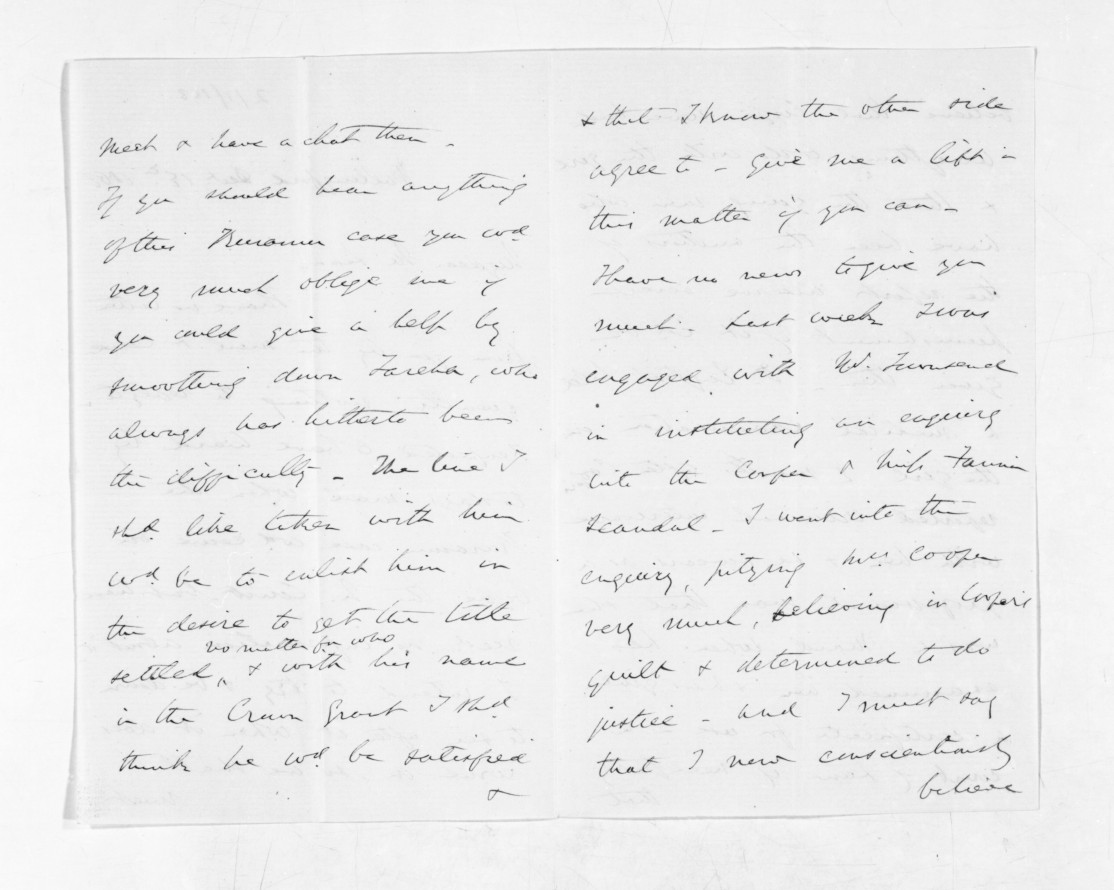 meet & have a chat then -
If you should hear anything
of this case you wod
very much oblige me if
you could give a help by
smoothing down Tareha, who
always has hitherto been
the difficulty - The line I
shd. like taken with him
wod. be to enlist him in
the desire to get the title
no matter for who
settled, & with his name
in the Crown Grant I shd.
think he wod. be satisfied
&
& that I know the other side
agree to - Give me a lift in
this matter if you can -
I have no news to give you
much. Last week I was
engaged with Mr. Townsend
in instituting an enquiry
into the Cooper & Miss
Scandal - I went into the
enquiry, pitying Mrs Cooper
very much, believing in Coopers
guilt & determined to do
justice - and I must say
that I now conscientiously
believe